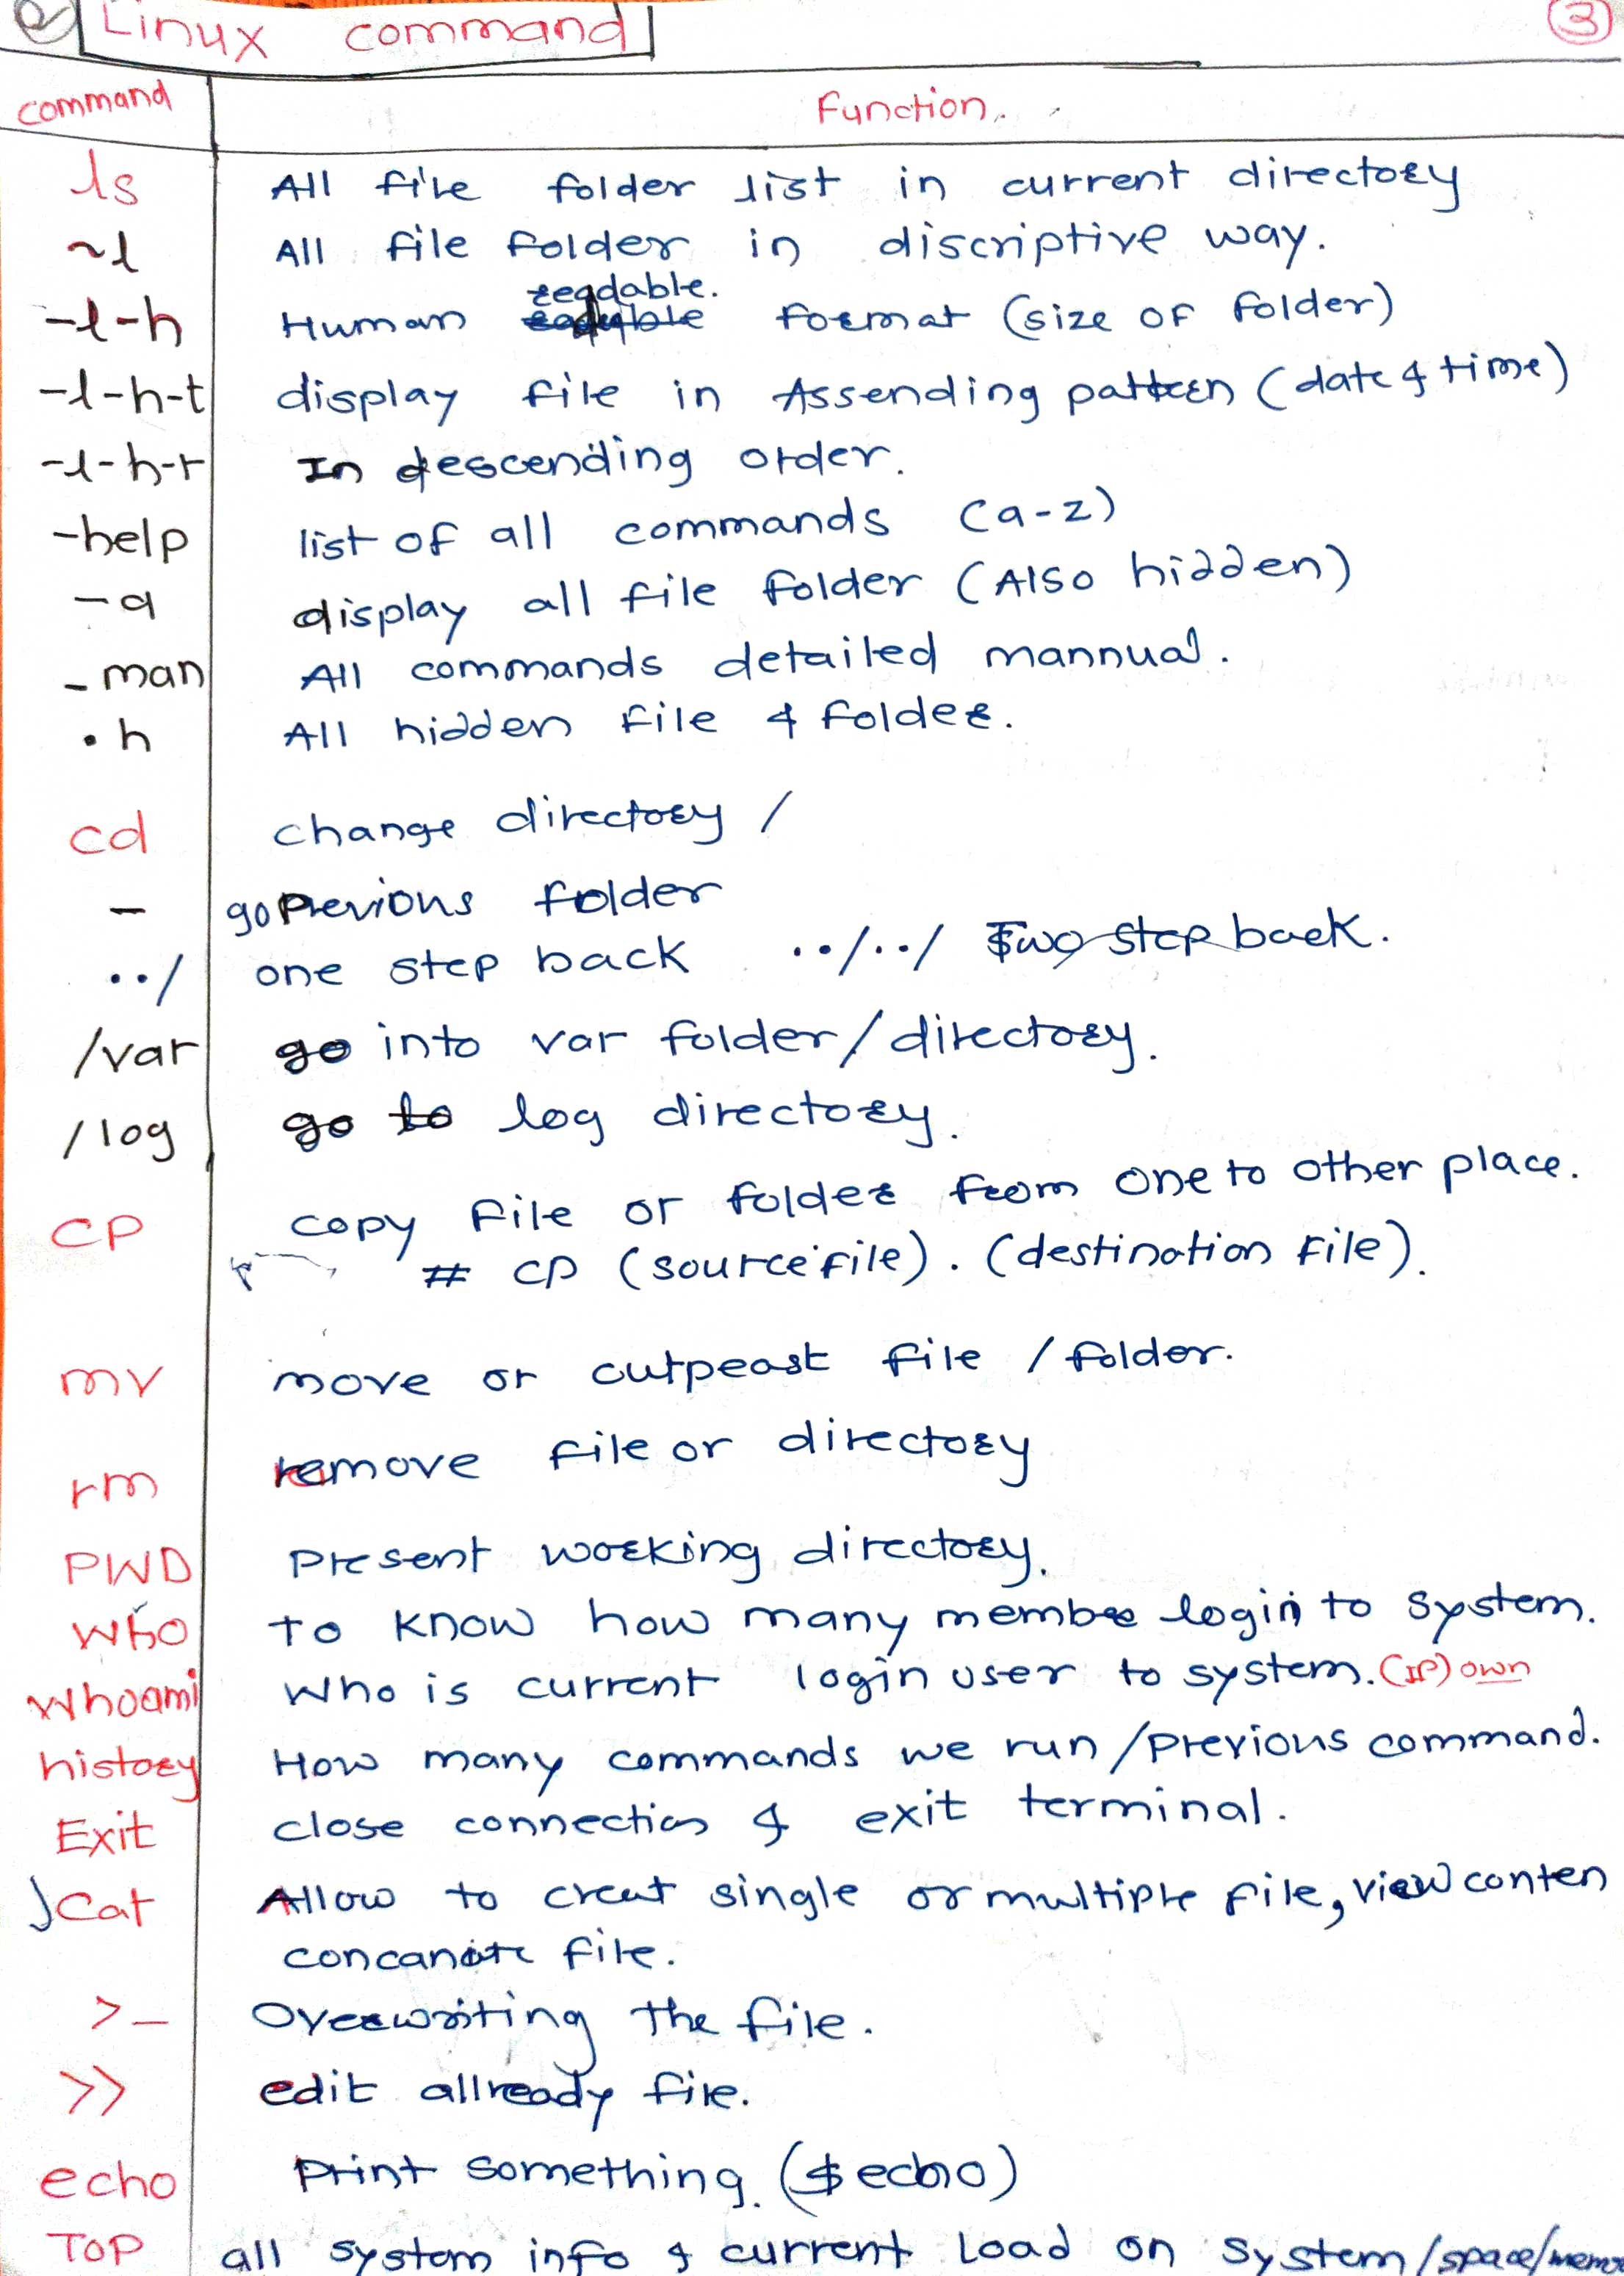 Linux command
3
command Function.
ls All file folder list in current directory
~l All file folder in discriptive way.
readable.
-l-h Human format (size of folder)
-l-h-t display file in Assending pattern (date & time)
-l-h-r In descending order.
-help list of all commands (a-z)
-a display all file folder (Also hidden)
-man All commands detailed mannual.
.h All hidden file & folder.
cd change directory /
- go Previous folder
../ one step back ../../ Two step back.
/var go into var folder/directory.
/log go to log directory.
CP copy file or folder from one to other place.
# CP (source file). (destination file).
mv move or cutpeast file / folder.
rm remove file or directory
PWD Present working directory.
Who To know how many membee login to system.
Whoami Who is current login user to system. (IP) own
history How many commands we run /previous command.
Exit close connection & exit terminal.
Cat Allow to creat single or multiple file, view conten
concanate file.
>_ Overwriting the file.
>> edit allready file.
echo Print something. ($ echo)
TOP all system info & current Load on system/space/memo